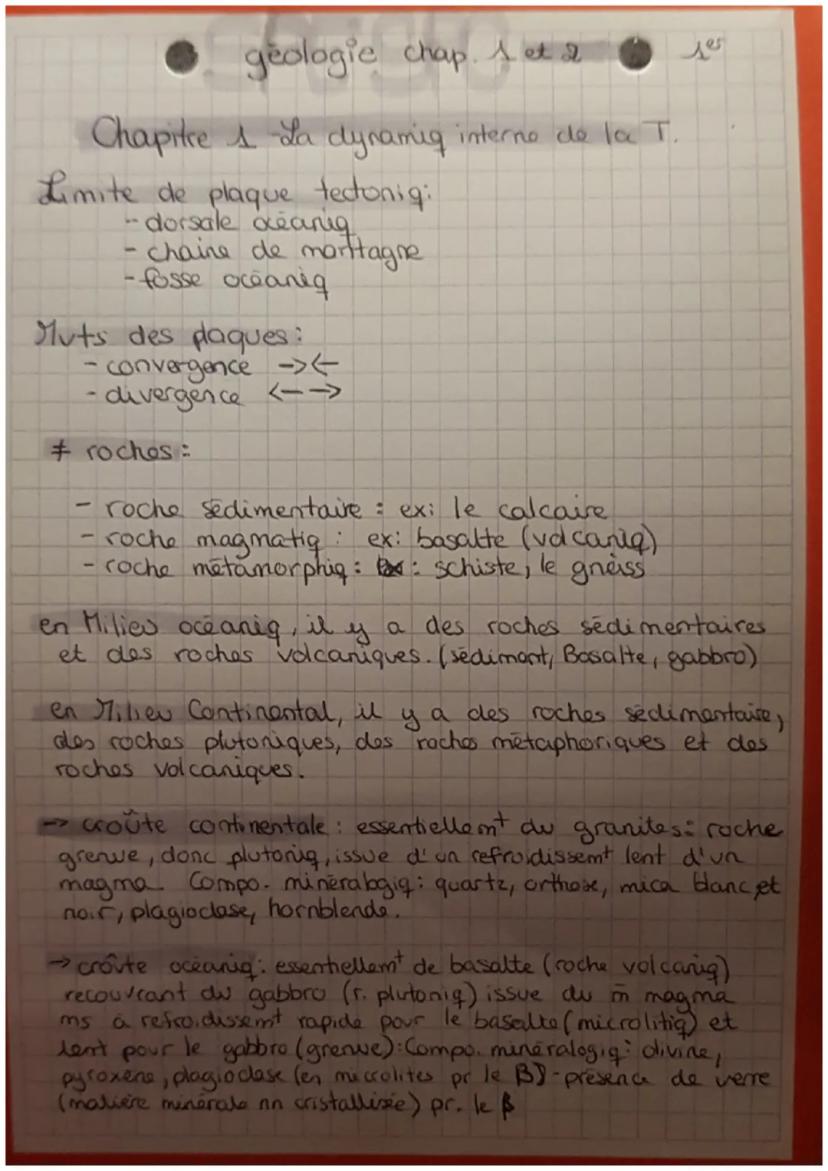 géologie chap. 1 et 2 1es
Chapitre 1 - La dynamiq interne de la T.
Limite de plaque tectoniq:
- dorsale océaniq
- chaine de montagne
- fosse océaniq
Mvts des plaques:
- convergence →←
- divergence ←→
≠ roches:
- roche sédimentaire : ex: le calcaire
- roche magmatiq : ex: basalte (volcaniq)
- roche métamorphiq : ex : schiste, le gneiss
en Milieu océaniq, il y a des roches sédimentaires
et des roches volcaniques. (sédiment, Basalte, gabbro)
en Milieu Continental, il y a des roches sédimentaire,
des roches plutoniques, des roches métaphoriques et des
roches volcaniques.
→ croûte continentale : essentiellemt du granites: roche
grenue, donc plutoniq, issue d'un refroidissemt lent d'un
magma. Compo. minéralogiq: quartz, orthose, mica blanc et
noir, plagioclase, hornblende.
→ croûte océaniq: essentiellemt de basalte (roche volcaniq)
recouvrant du gabbro (r. plutoniq) issue du m̄ magma
ms à refroidissemt rapide pour le basalte (microlitiq) et
lent pour le gabbro (grenue): Compo. minéralogiq: olivine,
pyroxène, plagioclase (en microlites pr le β) - présence de verre
(matière minérale nn cristallisée) pr. le β